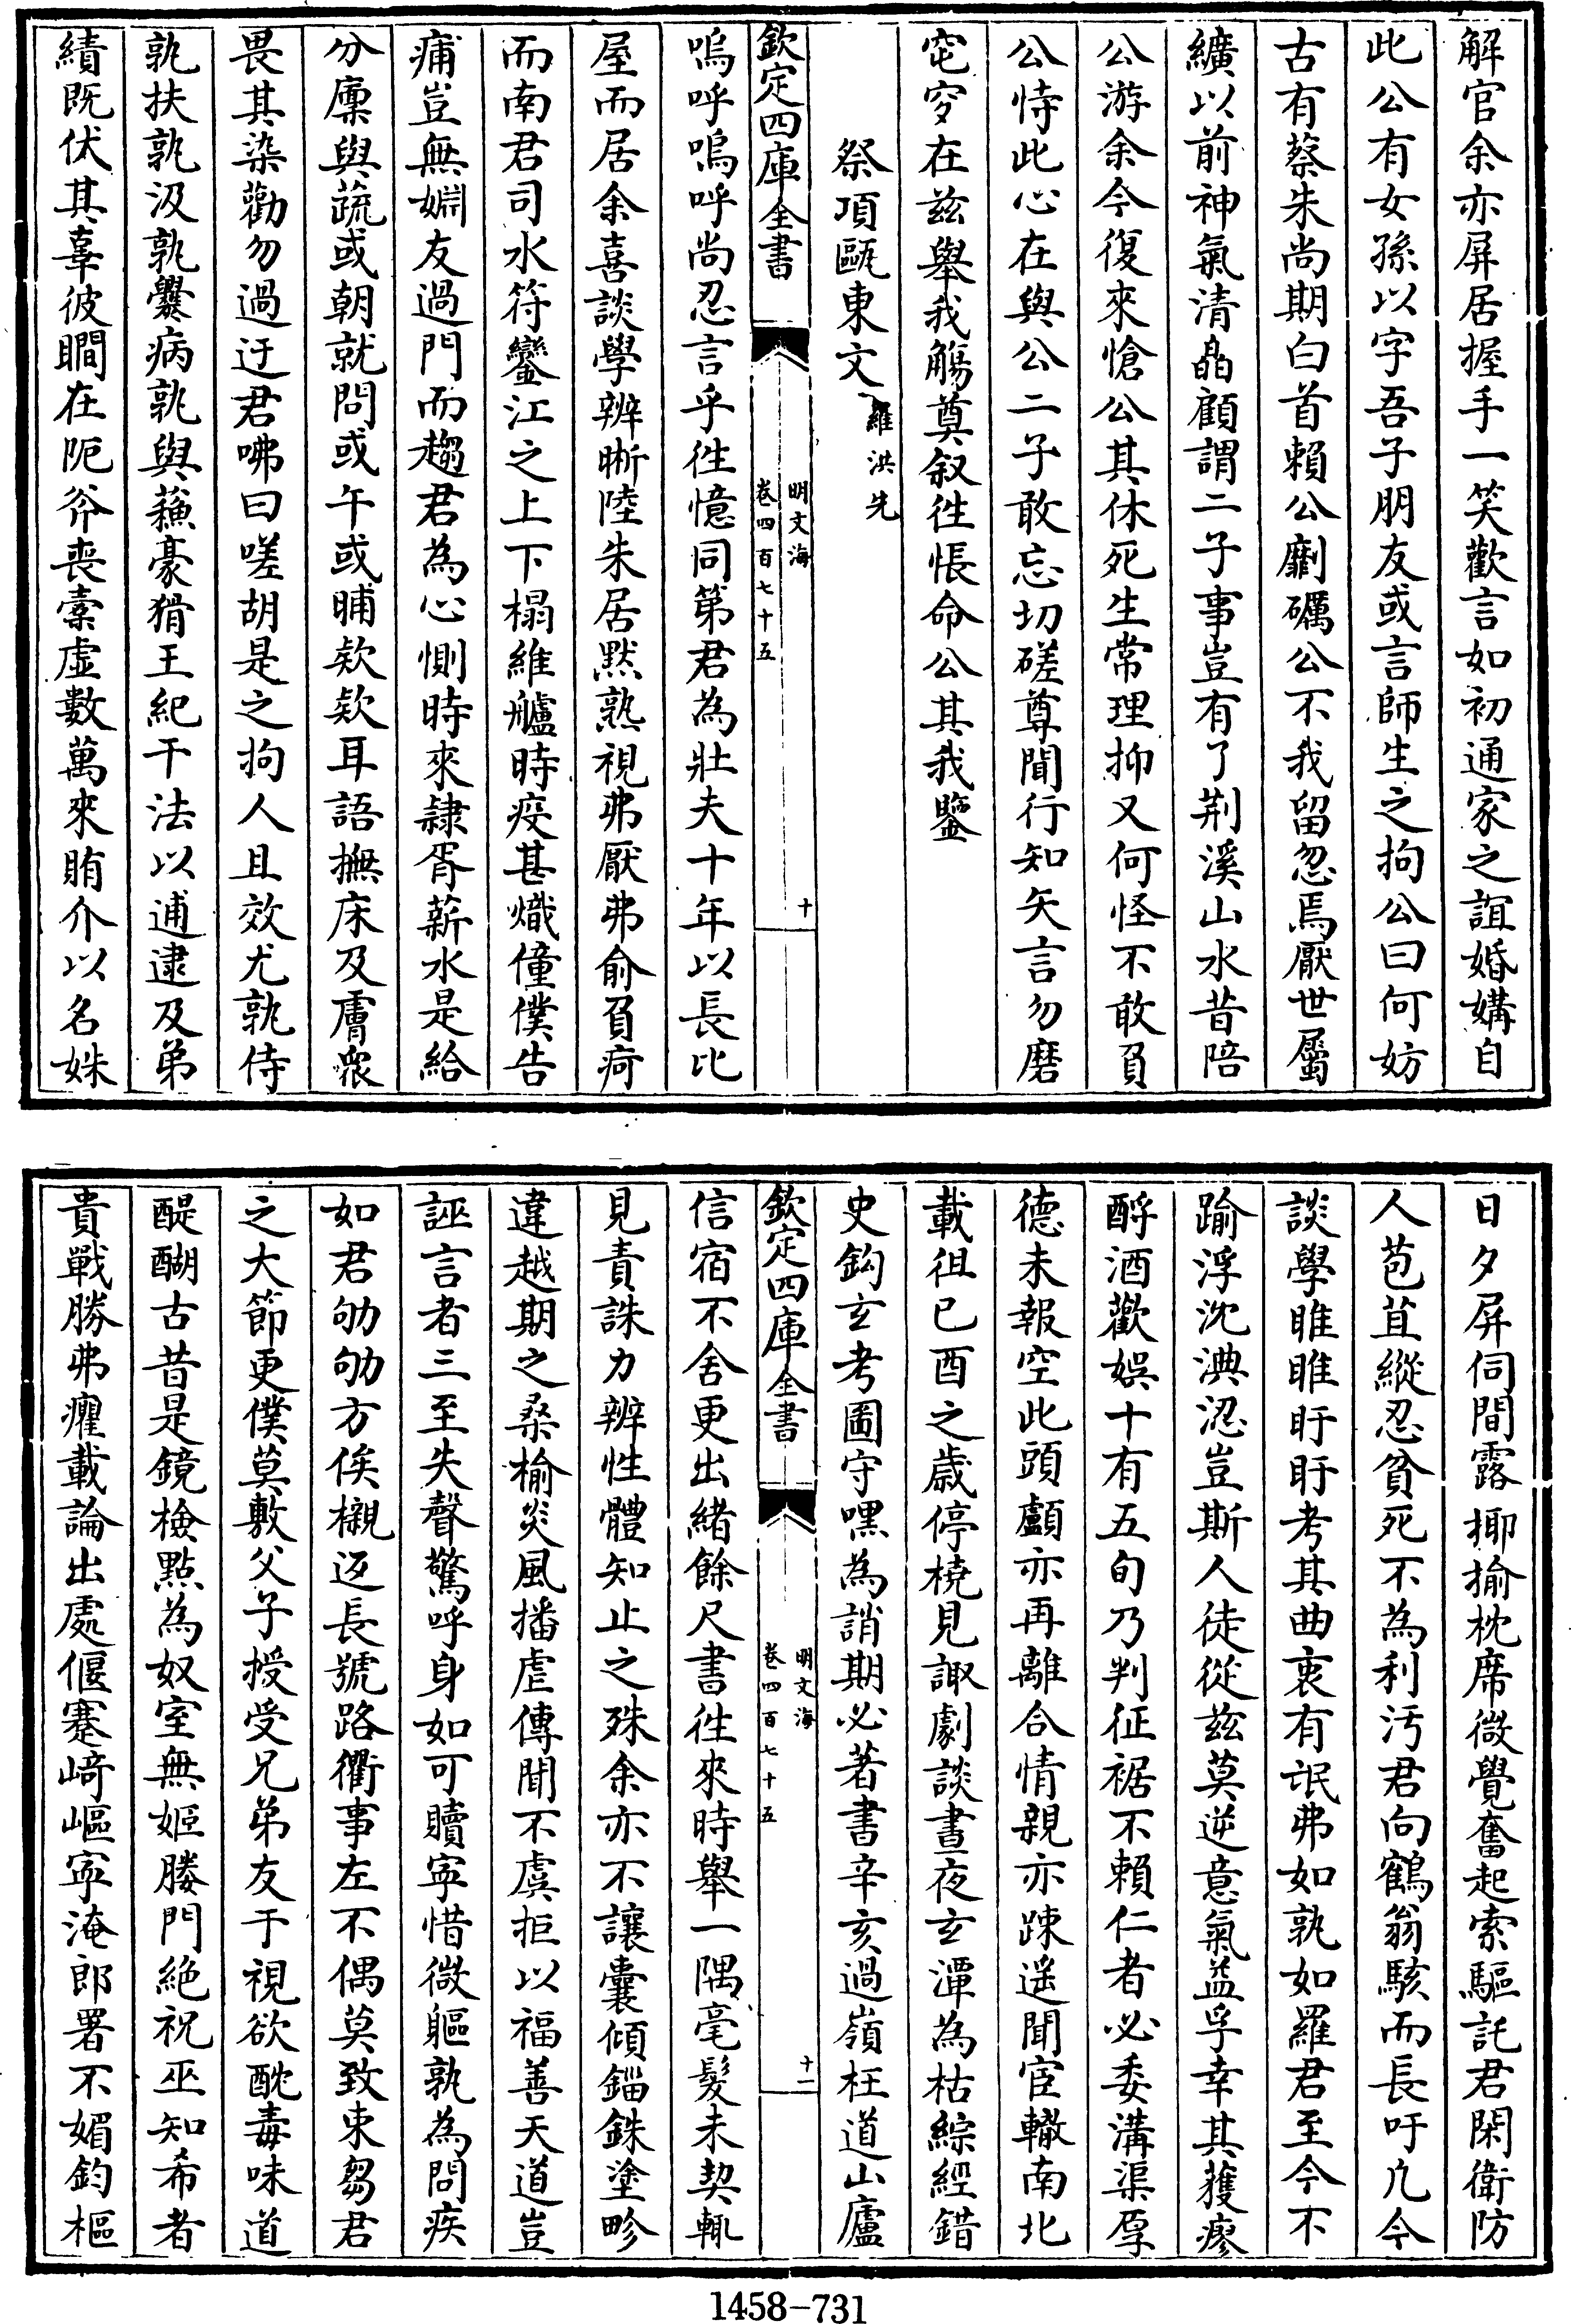 解官余亦屏居握手一笑歡言如初通家之誼婚媾自
此公有女孫以字吾子朋友或言師生之拘公曰何妨
古有蔡朱尚期白首賴公劘礪公不我留忽焉厭世屬
纊以前神氣清晶顧謂二子事豈有了荆溪山水昔陪
公游余今復來愴公其休死生常理抑又何怪不敢負
公恃此心在與公二子敢忘切磋尊聞行知矢言勿磨
窀穸在兹舉我觴奠叙徃悵命公其我鑒
祭項甌東文羅洪先
欽定四庫全書
明文海
卷四百七十五
十
嗚呼嗚呼尚忍言乎徃憶同第君為壯夫十年以長比
屋而居余喜談學辨晰陸朱居默熟視弗厭弗俞負痾
而南君司水符鑾江之上下榻維艫時疫甚熾僮僕告
痡豈無婣友過門而趨君為心惻時來隷胥薪水是給
分廩與蔬或朝就問或午或晡欵欵耳語撫床及膚衆
畏其染勸勿過迂君咈曰嗟胡是之拘人且效尤孰侍
孰扶孰汲孰爨病孰與蘓豪猾王紀干法以逋逮及弟
績既伏其辜彼瞯在阨斧丧槖虛數萬來賄介以名姝
日夕屏伺間露揶揄枕席微覺奮起索驅託君閑衛防
人苞苴縱忍貧死不為利汚君向鶴翁駭而長吁凢今
談學睢睢盱盱考其曲衷有氓弗如孰如羅君至今不
踰浮沈淟涊豈斯人徒從兹莫逆意氣益孚幸其獲瘳
酹酒歡娛十有五旬乃判征裾不賴仁者必委溝渠厚
德未報空此頭顱亦再離合情親亦踈遥聞宦轍南北
載徂已酉之歲停橈見諏劇談晝夜玄潭為枯綜經錯
史鈎玄考圖守嘿為誚期必著書辛亥過嶺枉道山廬
欽定四庫全書
明文海
卷四百七十五
十一
信宿不舍更出緒餘尺書徃來時舉一隅毫髮未契輒
見責誅力辨性體知止之殊余亦不讓囊傾錙銖塗畛
違越期之桑榆炎風播虐傳聞不虞拒以福善天道豈
誣言者三至失聲驚呼身如可贖寧惜微軀孰為問疾
如君劬劬方俟櫬返長號路衢事左不偶莫致束芻君
之大節更僕莫敷父子授受兄弟友于視欲酖毒味道
醍醐古昔是鏡檢點為奴室無姬媵門絶祝巫知希者
貴戰勝弗癯載論出處偃蹇﨑嶇寧淹郎署不媚鈞樞
1458-731